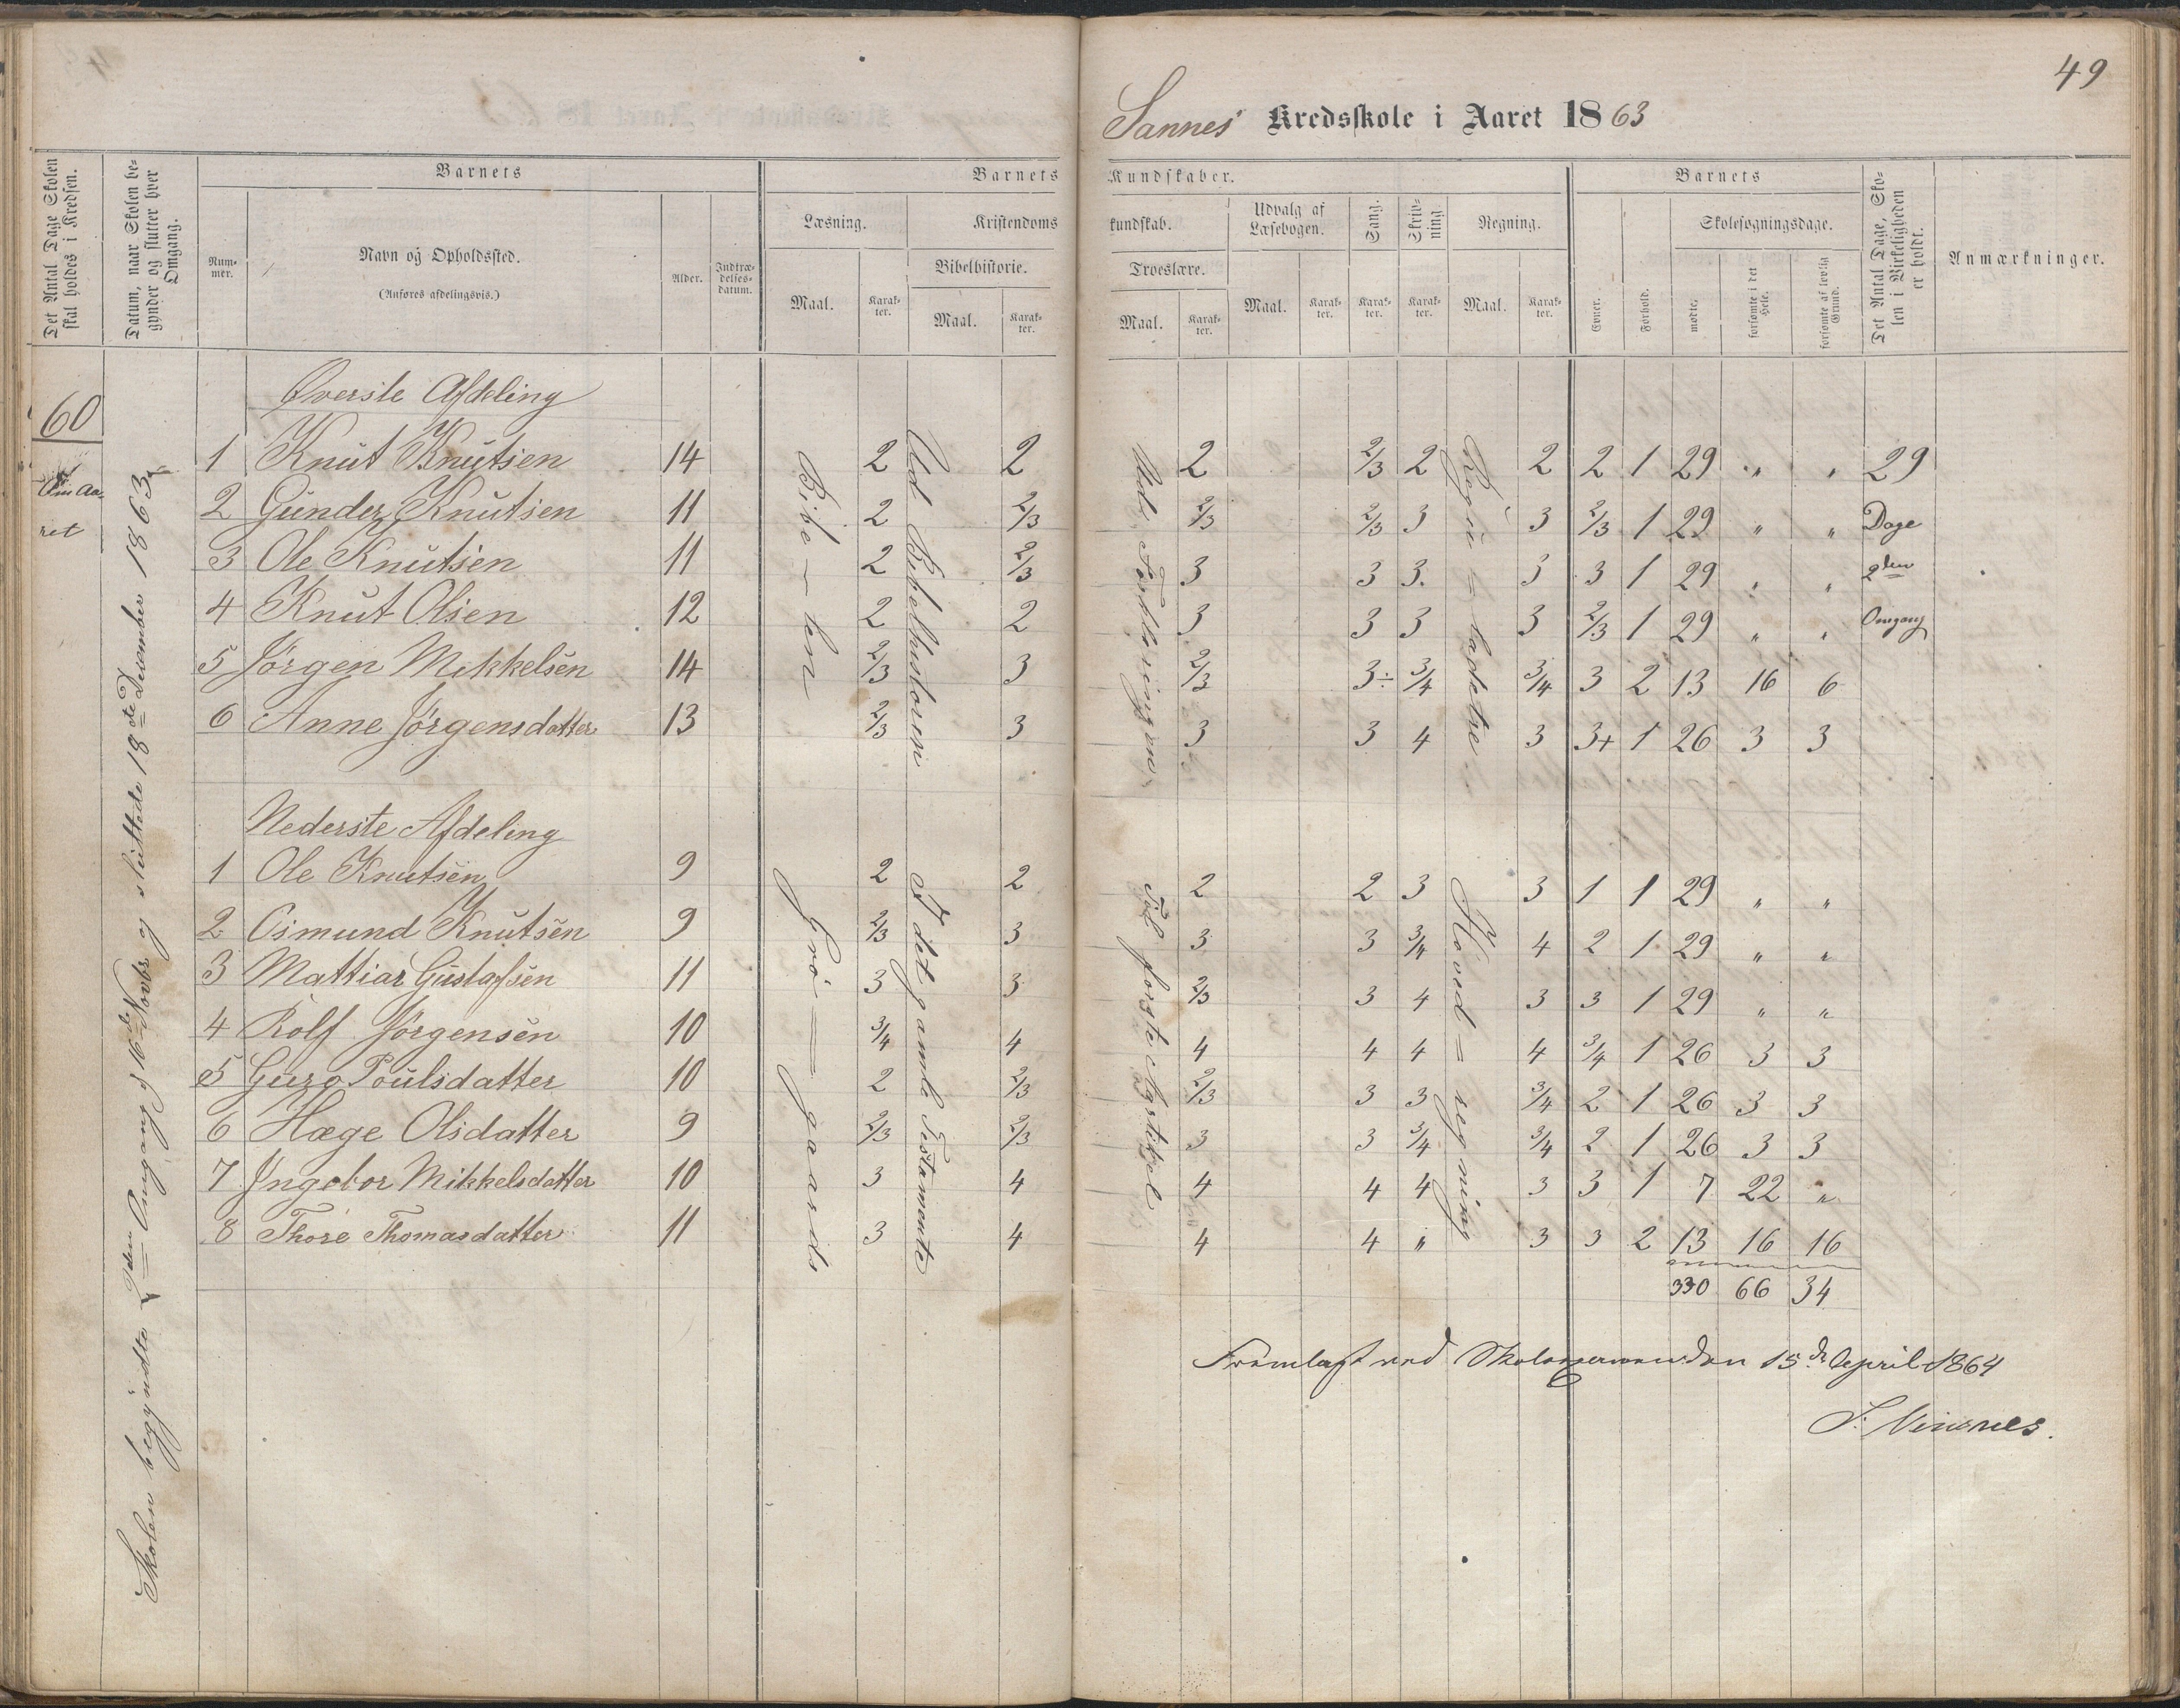 49
Sannes Kredsskole i Aaret 1863
Det Antal Dage Skolen skal holdes i Kredsen.
Datum, naar Skolen begynder og slutter hver Omgang.
Barnets
Nummer.
Navn og Opholdssted.
(Anføres afdelingsvis.)
Alder.
Indtrædelsesdatum.
Barnets Kundskaber.
Læsning.
Maal.
Karakter.
Kristendomskundskab.
Bibelhistorie.
Maal.
Karakter.
Troeslære.
Maal.
Karakter.
Udvalg af Læsebogen.
Maal.
Karakter.
Sang.
Karakter.
Skrivning.
Karakter.
Regning.
Maal.
Karakter.
Barnets
Evner.
Forhold.
Skolesøgningsdage.
mødte.
forsømte i det Hele.
forsømte af lovlig Grund.
Det Antal Dage, Skolen i Virkeligheden er holdt.
Anmærkninger.
60
Om Aaret
Skolen begyndte 2den Omgang d 16de Novbr og sluttede 18de December 1863
Øverste Afdeling
1 Knut Knutsen 14 2 2 2 2/3 2 2 2 1 29 " " 29
2 Gunder Knutsen 11 2 2/3 2/3 2/3 3 3 2/3 1 29 " " Dage
3 Ole Knutsen 11 2 2/3 3 3 3. 3 3 1 29 " " 2den
4 Knut Olsen 12 2 2 3 3 3 3 2/3 1 29 " " Omgang
5 Jörgen Mikkelsen 14 2/3 3 2/3 3÷ 3/4 3/4 3 2 13 16 6
6 Anne Jörgensdatter 13 2/3 3 3 3 4 3 3+ 1 26 3 3
Ud Bibelhistorien
Ud Forklaringen
Nederste Afdeling
1 Ole Knutsen 9 2 2 2 2 3 3 1 1 29 " "
2 Osmund Knutsen 9 2/3 3 3 3 3/4 4 2 1 29 " "
3 Mattias Gustafsen 11 3 3 2/3 3 4 3 3 1 29 " "
4 Rolf Jörgensen 10 3/4 4 4 4 4 4 3/4 1 26 3 3
5 Guro Poulsdatter 10 2 2/3 2/3 3 3 3/4 2 1 26 3 3
6 Hæge Olsdatter 9 2/3 2/3 3 3 3/4 3/4 2 1 26 3 3
7 Ingebor Mikkelsdatter 10 3 4 4 4 4 3 3 1 7 22 "
8 Thore Thomasdatter 11 3 4 4 4 " 3 3 2 13 16 16
I det gamle Testamente
Til förste Artikel
Hoved=regning
330 66 34
Fremlagt ved Skoleexamen den 15de April 1864